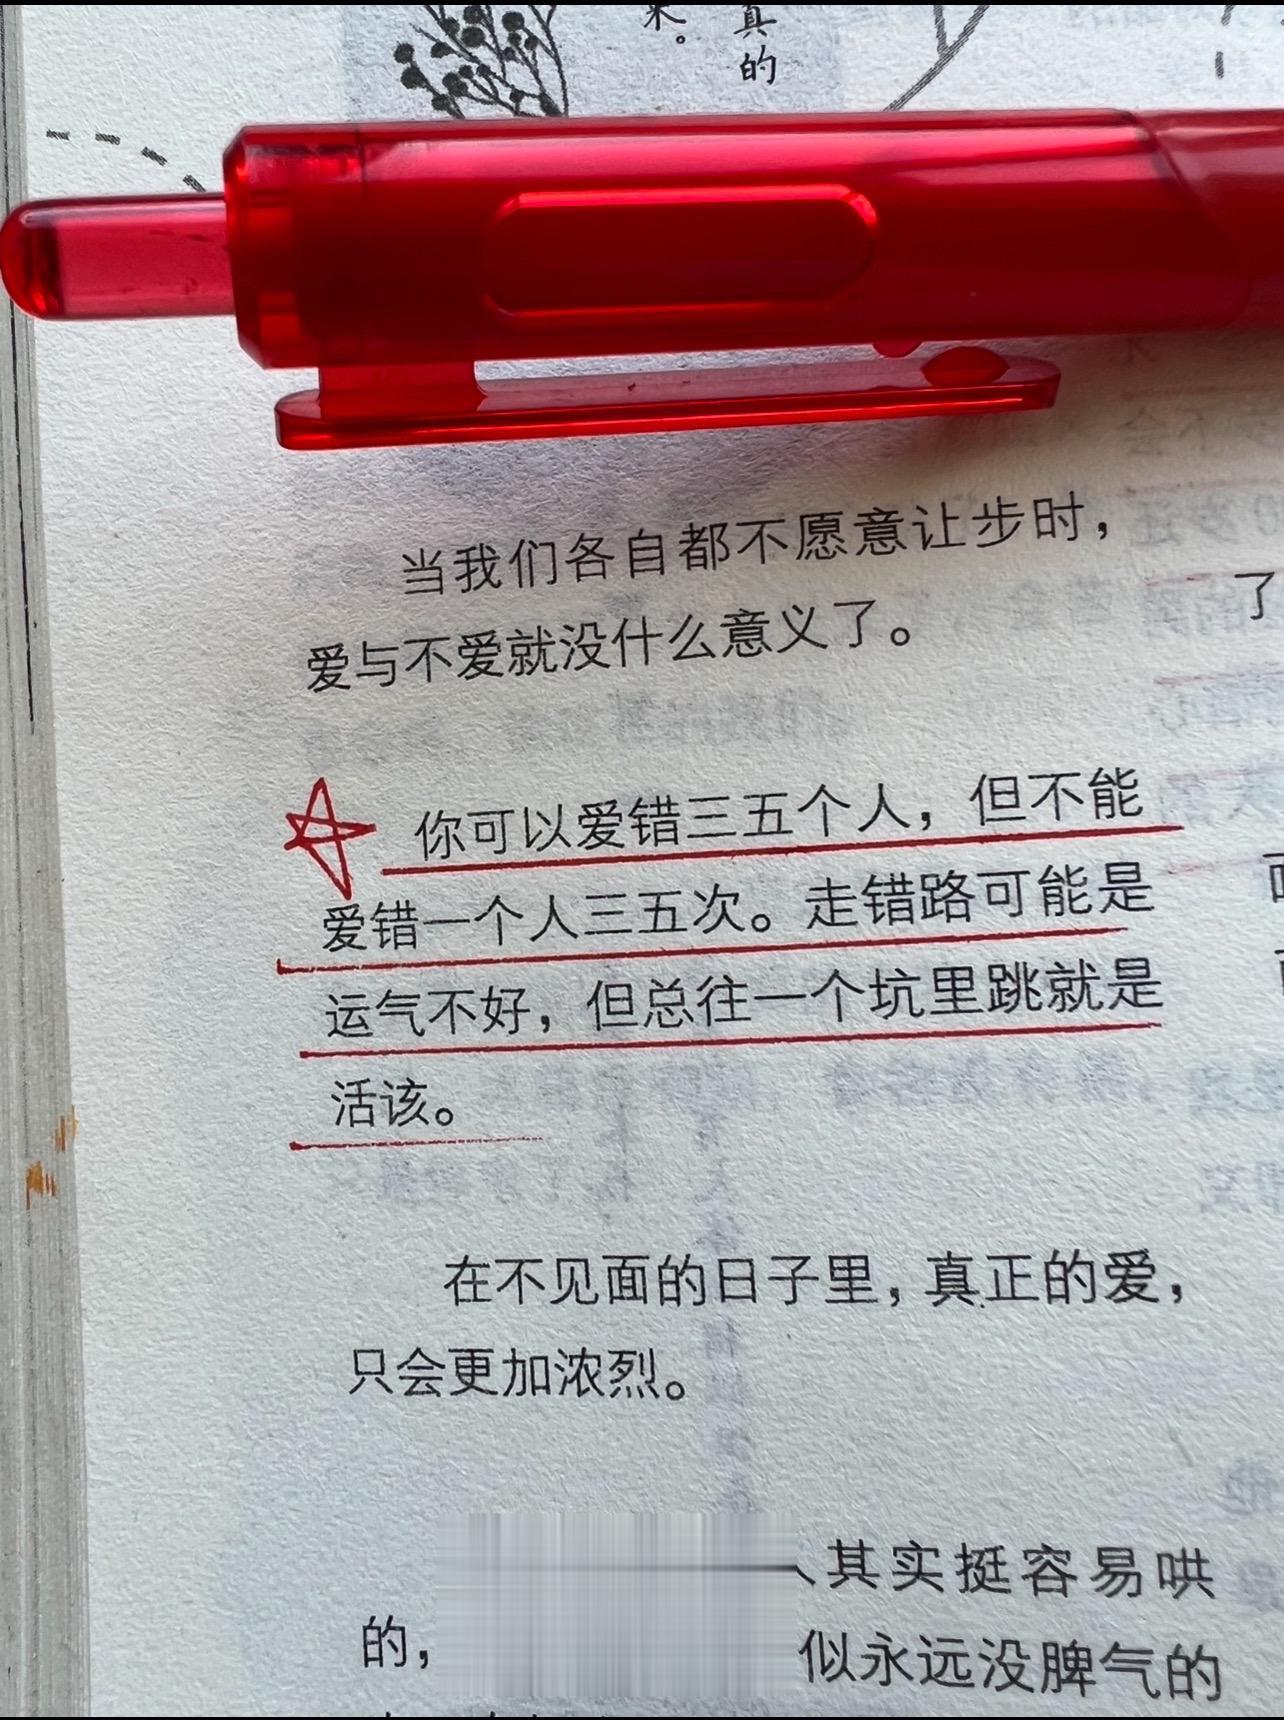 真的
来。
当我们各自都不愿意让步时，
爱与不爱就没什么意义了。
你可以爱错三五个人，但不能
爱错一个人三五次。走错路可能是
运气不好，但总往一个坑里跳就是
活该。
在不见面的日子里，真正的爱，
只会更加浓烈。
其实挺容易哄
的，
似永远没脾气的
了